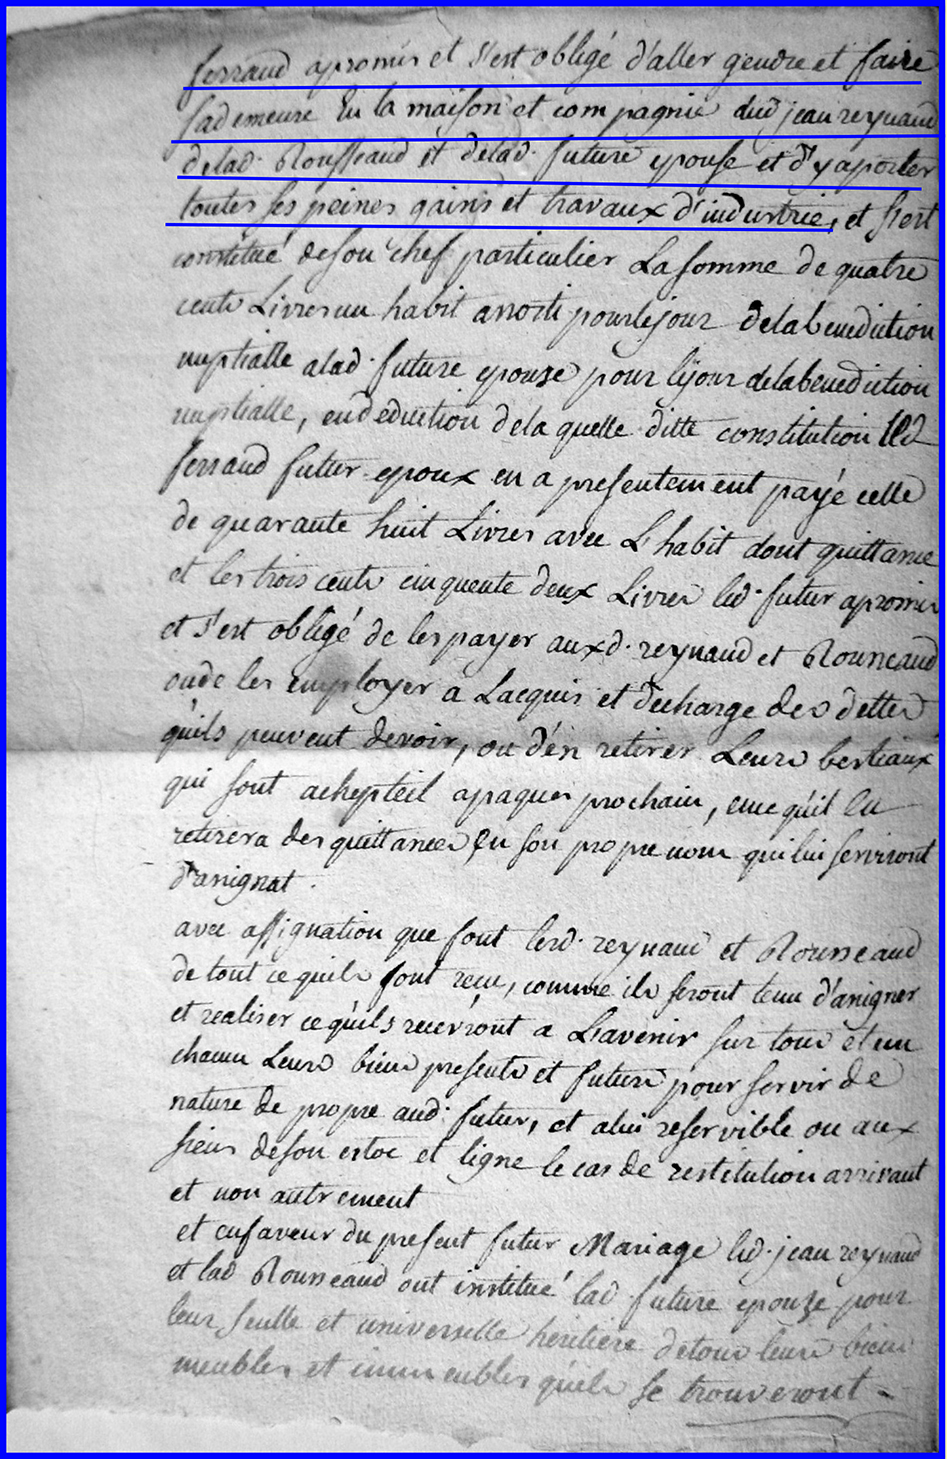 ferraud apromis et s'est obligé d'aller gendre et faire
sademeure En la maison et compagnie dud jean reynaud
delad. Rousseaud et delad. future epouse et d'y aporter
toutes ses peines gains et travaux d'industrie, et s'est
constitué deson chef particulier La somme de quatre
cents Livres un habit assorti pour le jour delabenediction
nuptialle alad. future epouze pour le jour delabenediction
nuptialle, endeduction dela quelle ditte constitution led
ferraud futur epoux en a presentement payé celle
de quarante huit Livres avec L'habit dont quittance
et les trois cents cinquente deux Livres led. futur apromis
et s'est obligé de les payer auxd. reynaud et Rousseaud
oude les employer a Lacquis et decharge des dettes
qu'ils peuvent devoir, ou d'en retirer Leurs bestiaux
qui sont achepteil apaques prochain, ence qu'il En
retirera des quittances En son propre nom qui lui serviront
d'assignat.
avec assignation que font lesd. reynaud et Rousseaud
de tout ce quils font recu, comme ils seront tenu d'assigner
et realiser cequ'ils recevront a L'avenir sur tous et un
chacun Leurs biens presents et futurs pour servir de
nature de propre aud. futur, et alui reservible ou aux
siens deson estoc et ligne le cas de restitution arrivant
et non autrement
et enfaveur du present futur Mariage led. jean reynaud
et lad Rousseaud ont institué lad future epouze pour
leur seulle et universelle heritiere detous leurs biens
meubles et immeubles qu'ils se trouveront